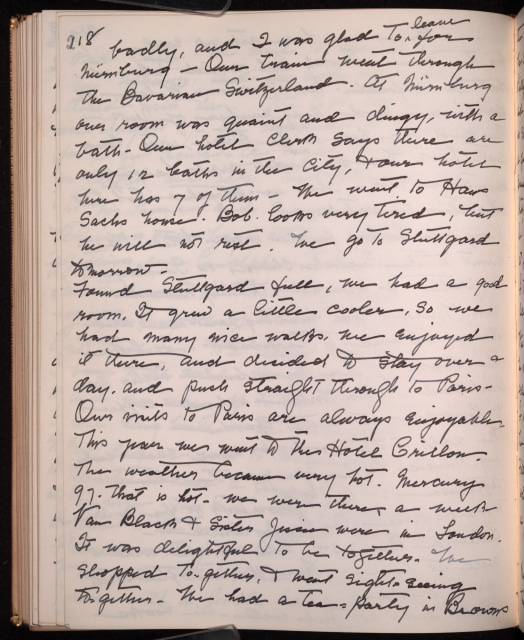 218
badly, and I was glad to leave for
Nürnburg - Our train went through
the Bavarian Switzerland. At Nürnburg
our room was quaint and dingy, with a
bath - Our hotel clerk says there are
only 12 baths in the city, & our hotel
here has 7 of them - We went to Hans
Sachs house. Bob looks very tired, but
he will not rest. We go to Stuttgard
tomorrow -
Found Stuttgard full, we had a good
room. It grew a little cooler, so we
had many nice walks. We enjoyed
it there, and decided to stay over a
day. and push straight through to Paris -
Our visits to Paris are always enjoyable.
This year we went to the Hotel Crillon.
The weather became very hot. Mercury
97. that is hot - we were there a week
Van Black & Sister were in London.
It was delightful to be together. We
shopped together, & went sight-seeing
together - We had a tea-party in Browns